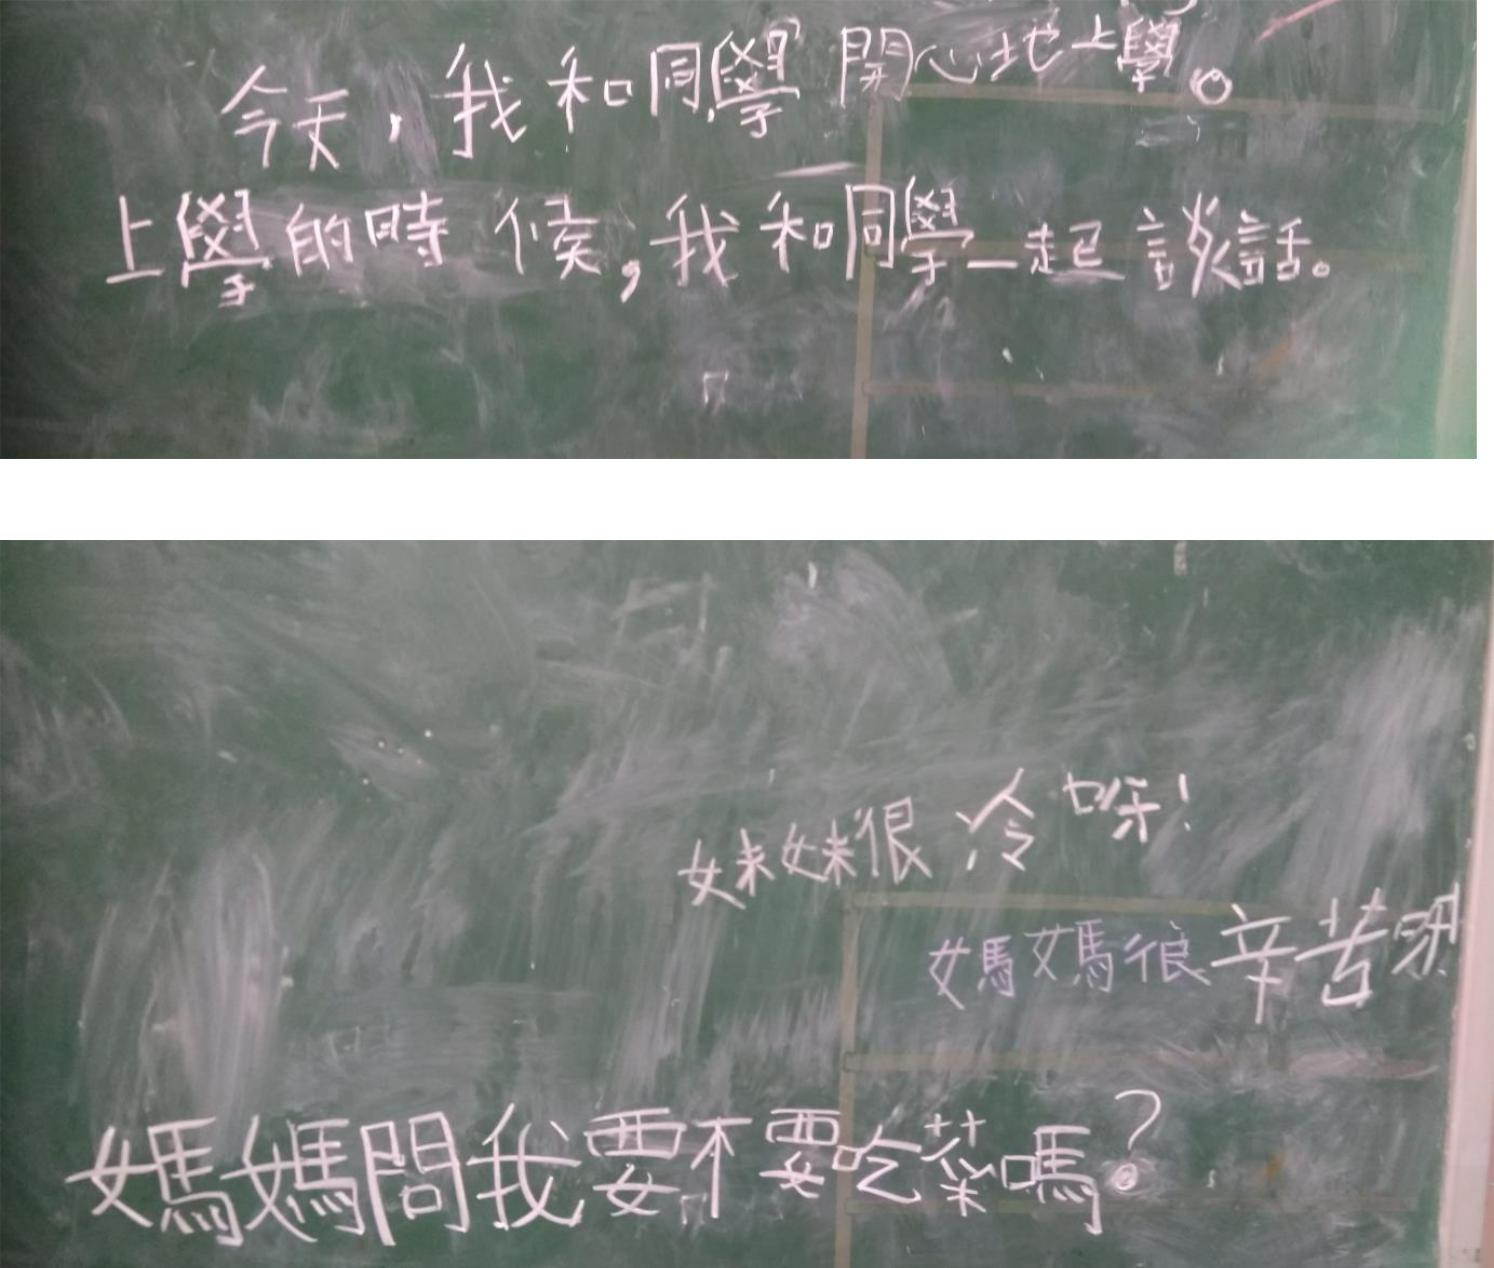 今天，我和同學開心地上學。
上學的時候，我和同學一起談話。
妹妹很冷呀！
媽媽很辛苦呀
媽媽問我要不要吃菜嗎？